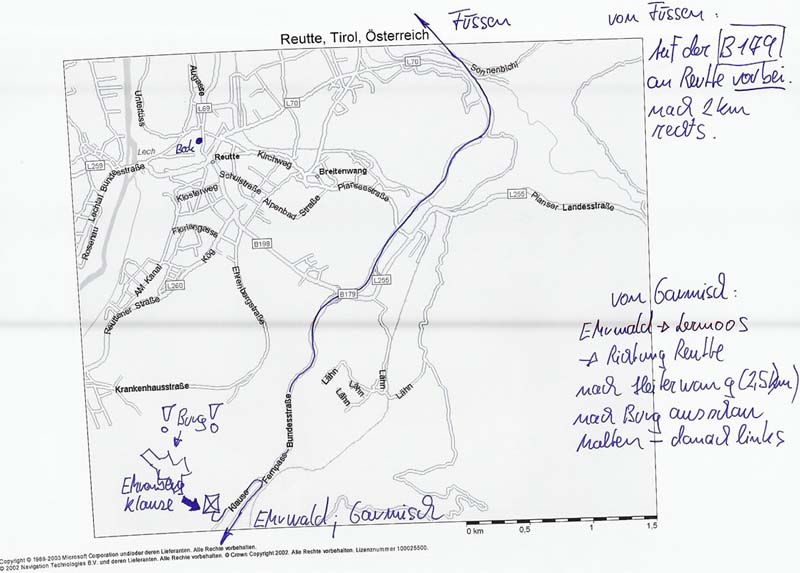 Reutte, Tirol, Österreich
Füssen
von Füssen:
Auf der B179
an Reutte vorbei.
nach 2 km
rechts.
L70
Sonnenbichl
Augasse
L69
L70
Unterlüss
Lech
Back
Reutte
Kirchweg
Breitenwang
L259
Rosenau
Lechtal. Bundesstraße
Schulstraße
Planseestraße
Klosterweg
Alpenbad-Straße
L255
Planser Landesstraße
Floriangasse
B198
Kög
AM Kanal
L260
L255
Reuttener Straße
Ehrenbergstraße
B179
von Garmisch:
Ehrwald → Lermoos
→ Richtung Reutte
nach Heiterwang (2,5 km)
nach Burg ausschau
halten – danach links
Lähn
Lähn
Lähn
Lähn
Lähn
Krankenhausstraße
! Burg !
Klause
Klause
Fernpass-Bundesstraße
Ehrwald; Garmisch
0 km 0,5 1 1,5
Copyright © 1989-2003 Microsoft Corporation und/oder deren Lieferanten. Alle Rechte vorbehalten.
© 2002 Navigation Technologies B.V. und deren Lieferanten. Alle Rechte vorbehalten. © Crown Copyright 2002. Alle Rechte vorbehalten. Lizenznummer 100025500.